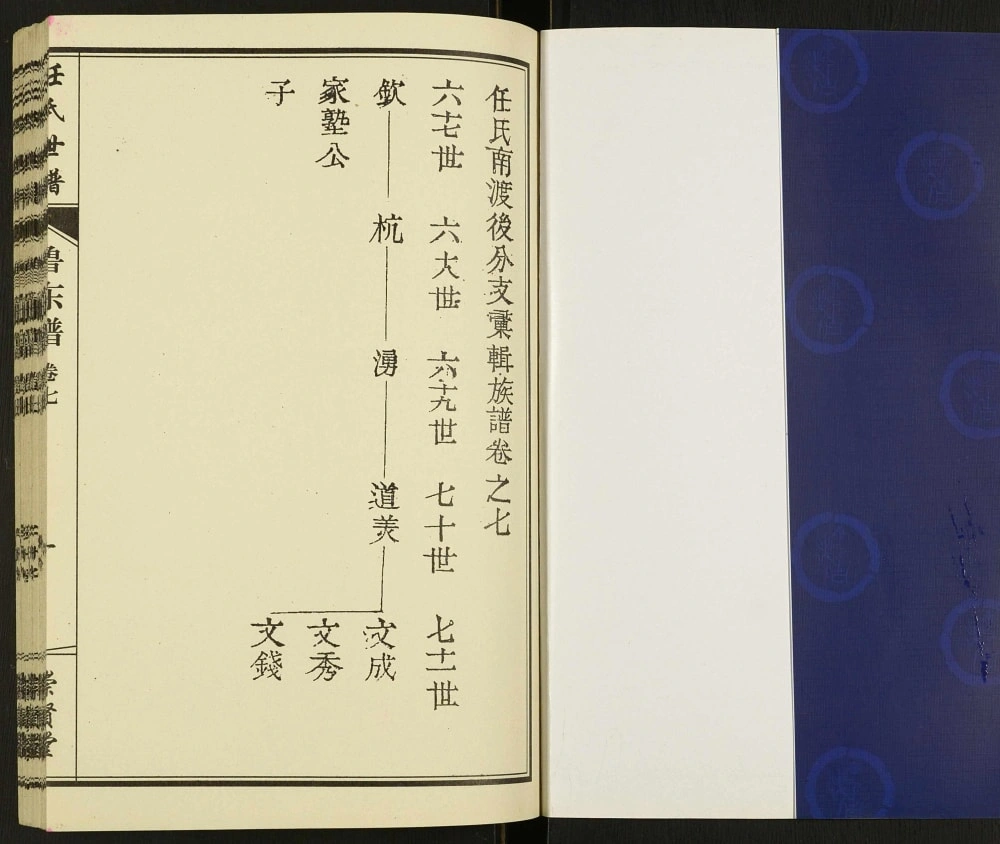 任氏南渡後分支彙輯族譜卷之七
六十七世
六十八世
六十九世
七十世
七十一世
欽
杭
湧
道美
文成
家塾公
文秀
子
文錢
任氏世譜
魯东譜
卷七
一
崇賢堂